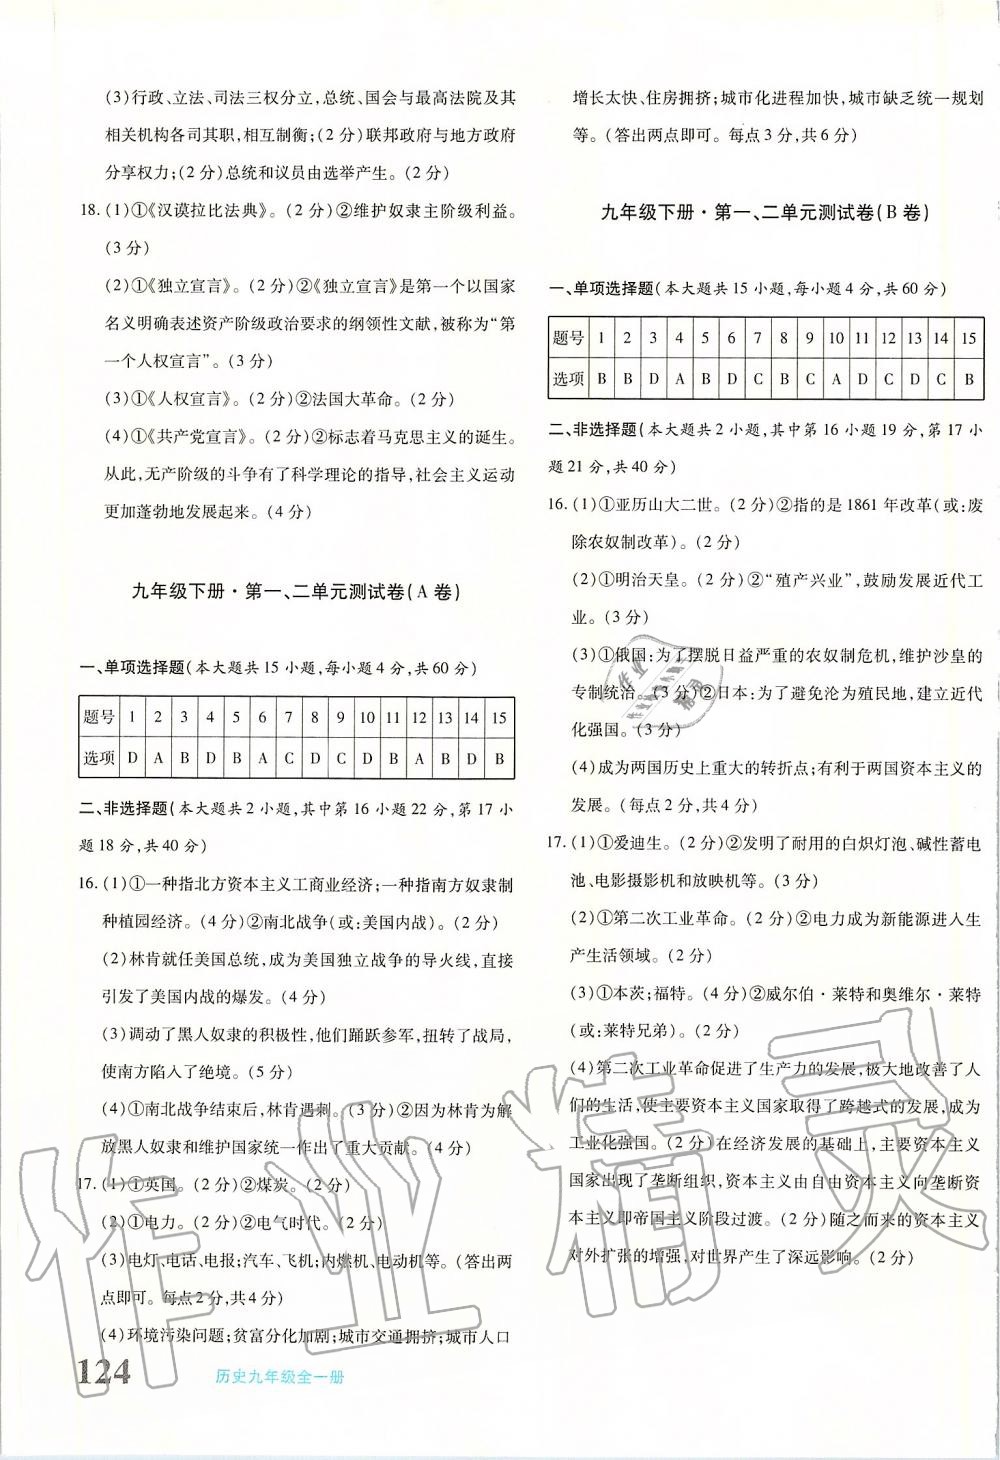 (3)行政、立法、司法三权分立,总统、国会与最高法院及其
相关机构各司其职,相互制衡;(2 分)联邦政府与地方政府
分享权力;(2 分)总统和议员由选举产生。(2 分)
18. (1)①《汉谟拉比法典》。(2 分)②维护奴隶主阶级利益。
(3 分)
(2)①《独立宣言》。(2 分)②《独立宣言》是第一个以国家
名义明确表述资产阶级政治要求的纲领性文献,被称为“第
一个人权宣言”。(3 分)
(3)①《人权宣言》。(2 分)②法国大革命。(2 分)
(4)①《共产党宣言》。(2 分)②标志着马克思主义的诞生。
从此,无产阶级的斗争有了科学理论的指导,社会主义运动
更加蓬勃地发展起来。(4 分)
九年级下册·第一、二单元测试卷(A 卷)
一、单项选择题(本大题共 15 小题,每小题 4 分,共 60 分)
题号 1 2 3 4 5 6 7 8 9 10 11 12 13 14 15
选项 D A B D B A C D C D B A B D B
二、非选择题(本大题共 2 小题,其中第 16 小题 22 分,第 17 小
题 18 分,共 40 分)
16. (1)①一种指北方资本主义工商业经济;一种指南方奴隶制
种植园经济。(4 分)②南北战争(或:美国内战)。(2 分)
(2)林肯就任美国总统,成为美国独立战争的导火线,直接
引发了美国内战的爆发。(4 分)
(3)调动了黑人奴隶的积极性,他们踊跃参军,扭转了战局,
使南方陷入了绝境。(5 分)
(4)①南北战争结束后,林肯遇刺。(3 分)②因为林肯为解
放黑人奴隶和维护国家统一作出了重大贡献。(4 分)
17. (1)①英国。(2 分)②煤炭。(2 分)
(2)①电力。(2 分)②电气时代。(2 分)
(3)电灯、电话、电报;汽车、飞机;内燃机、电动机等。(答出两
点即可。每点 2 分,共 4 分)
(4)环境污染问题;贫富分化加剧;城市交通拥挤;城市人口
124
历史九年级全一册
增长太快、住房拥挤;城市化进程加快,城市缺乏统一规划
等。(答出两点即可。每点 3 分,共 6 分)
九年级下册·第一、二单元测试卷(B 卷)
一、单项选择题(本大题共 15 小题,每小题 4 分,共 60 分)
题号 1 2 3 4 5 6 7 8 9 10 11 12 13 14 15
选项 B B D A B D C B C A D C D C B
二、非选择题(本大题共 2 小题,其中第 16 小题 19 分,第 17 小
题 21 分,共 40 分)
16. (1)①亚历山大二世。(2 分)②指的是 1861 年改革(或:废
除农奴制改革)。(2 分)
(2)①明治天皇。(2 分)②“殖产兴业”,鼓励发展近代工
业。(3 分)
(3)①俄国:为了摆脱日益严重的农奴制危机,维护沙皇的
专制统治。(3 分)②日本:为了避免沦为殖民地,建立近代
化强国。(3 分)
(4)成为两国历史上重大的转折点;有利于两国资本主义的
发展。(每点 2 分,共 4 分)
17. (1)①爱迪生。(2 分)②发明了耐用的白炽灯泡、碱性蓄电
池、电影摄影机和放映机等。(3 分)
(2)①第二次工业革命。(2 分)②电力成为新能源进入生
产生活领域。(2 分)
(3)①本茨;福特。(4 分)②威尔伯·莱特和奥维尔·莱特
(或:莱特兄弟)。(2 分)
(4)第二次工业革命促进了生产力的发展,极大地改善了人
们的生活,使主要资本主义国家取得了跨越式的发展,成为
工业化强国。(2 分)在经济发展的基础上,主要资本主义
国家出现了垄断组织,资本主义由自由资本主义向垄断资
本主义即帝国主义阶段过渡。(2 分)随之而来的资本主义
对外扩张的增强,对世界产生了深远影响。(2 分)
作业精灵